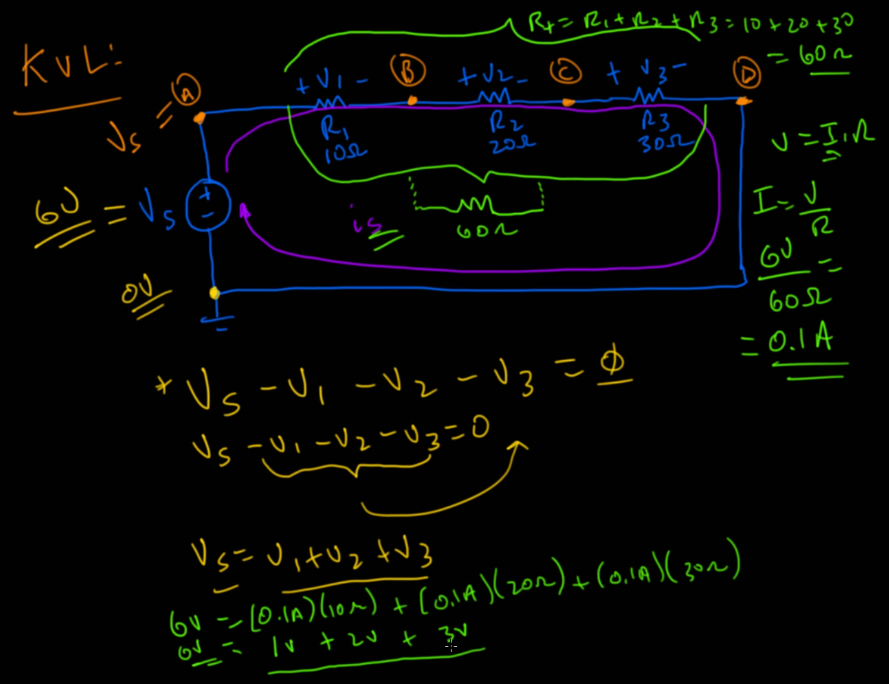 KVL:
Rt = R1 + R2 + R3 = 10 + 20 + 30
= 60Ω
A
+ V1 -
B
+ V2 -
C
+ V3 -
D
Vs =
R1
10Ω
R2
20Ω
R3
30Ω
V = I.R
6V = Vs
+
-
is
60Ω
I = V/R
6V/60Ω =
= 0.1A
0V
+ Vs - V1 - V2 - V3 = ϕ
Vs - V1 - V2 - V3 = 0
Vs = V1 + V2 + V3
6V = (0.1A)(10Ω) + (0.1A)(20Ω) + (0.1A)(30Ω)
6V = 1V + 2V + 3V